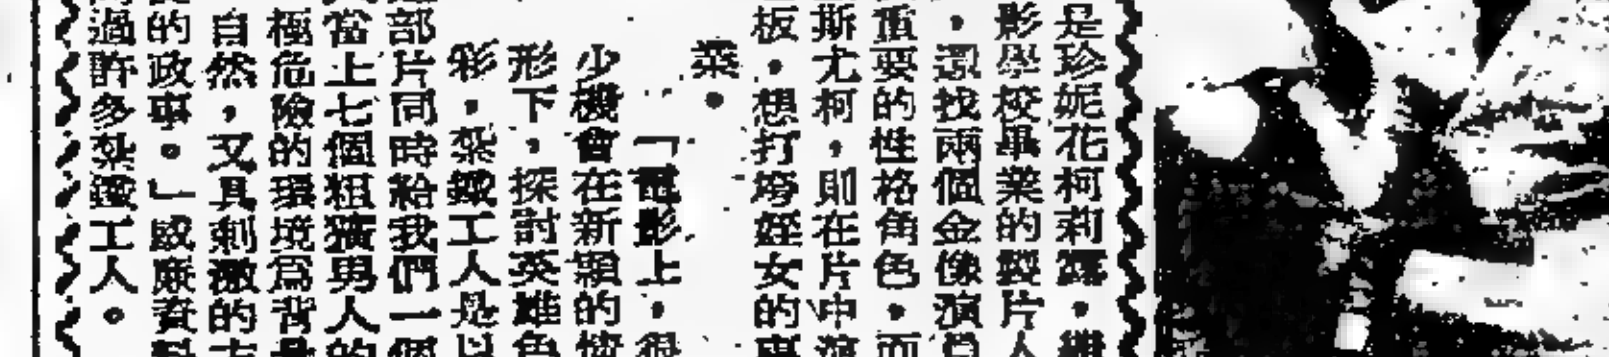 是珍妮花柯莉露，繼
影學校畢業的製片人
，還找兩個金像演員
重要的性格角色，而
斯尤柯，則在片中演
板，想打垮姪女的事
業。
「電影上，很
少機會在新穎的情
形下，探討英雄色
彩，紮鐵工人是以
部片同時給我們一個
當上七個粗獷男人的
極危險的環境為背景
自然，又具刺激的方
的政事。」威廉資料
過許多紮鐵工人。